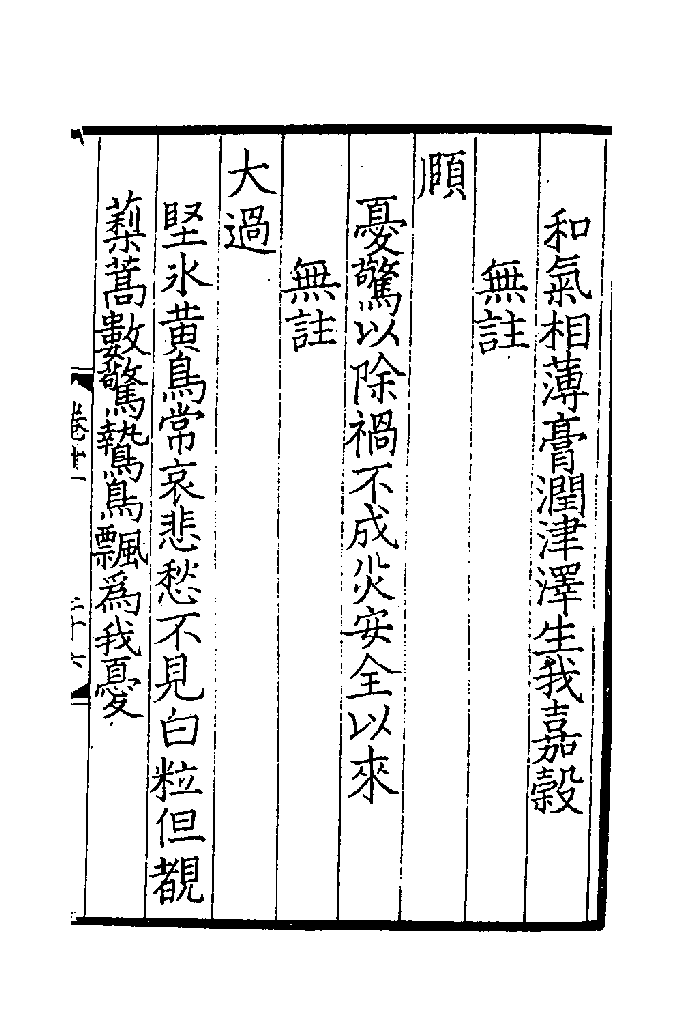 和氣相薄膏潤津澤生我嘉穀
無註
頤
憂驚以除禍不成災安全以來
無註
大過
堅氷黄鳥常哀悲愁不見白粒但覩
藜蒿數驚鷙鳥飄為我憂
卷廿一
二十六